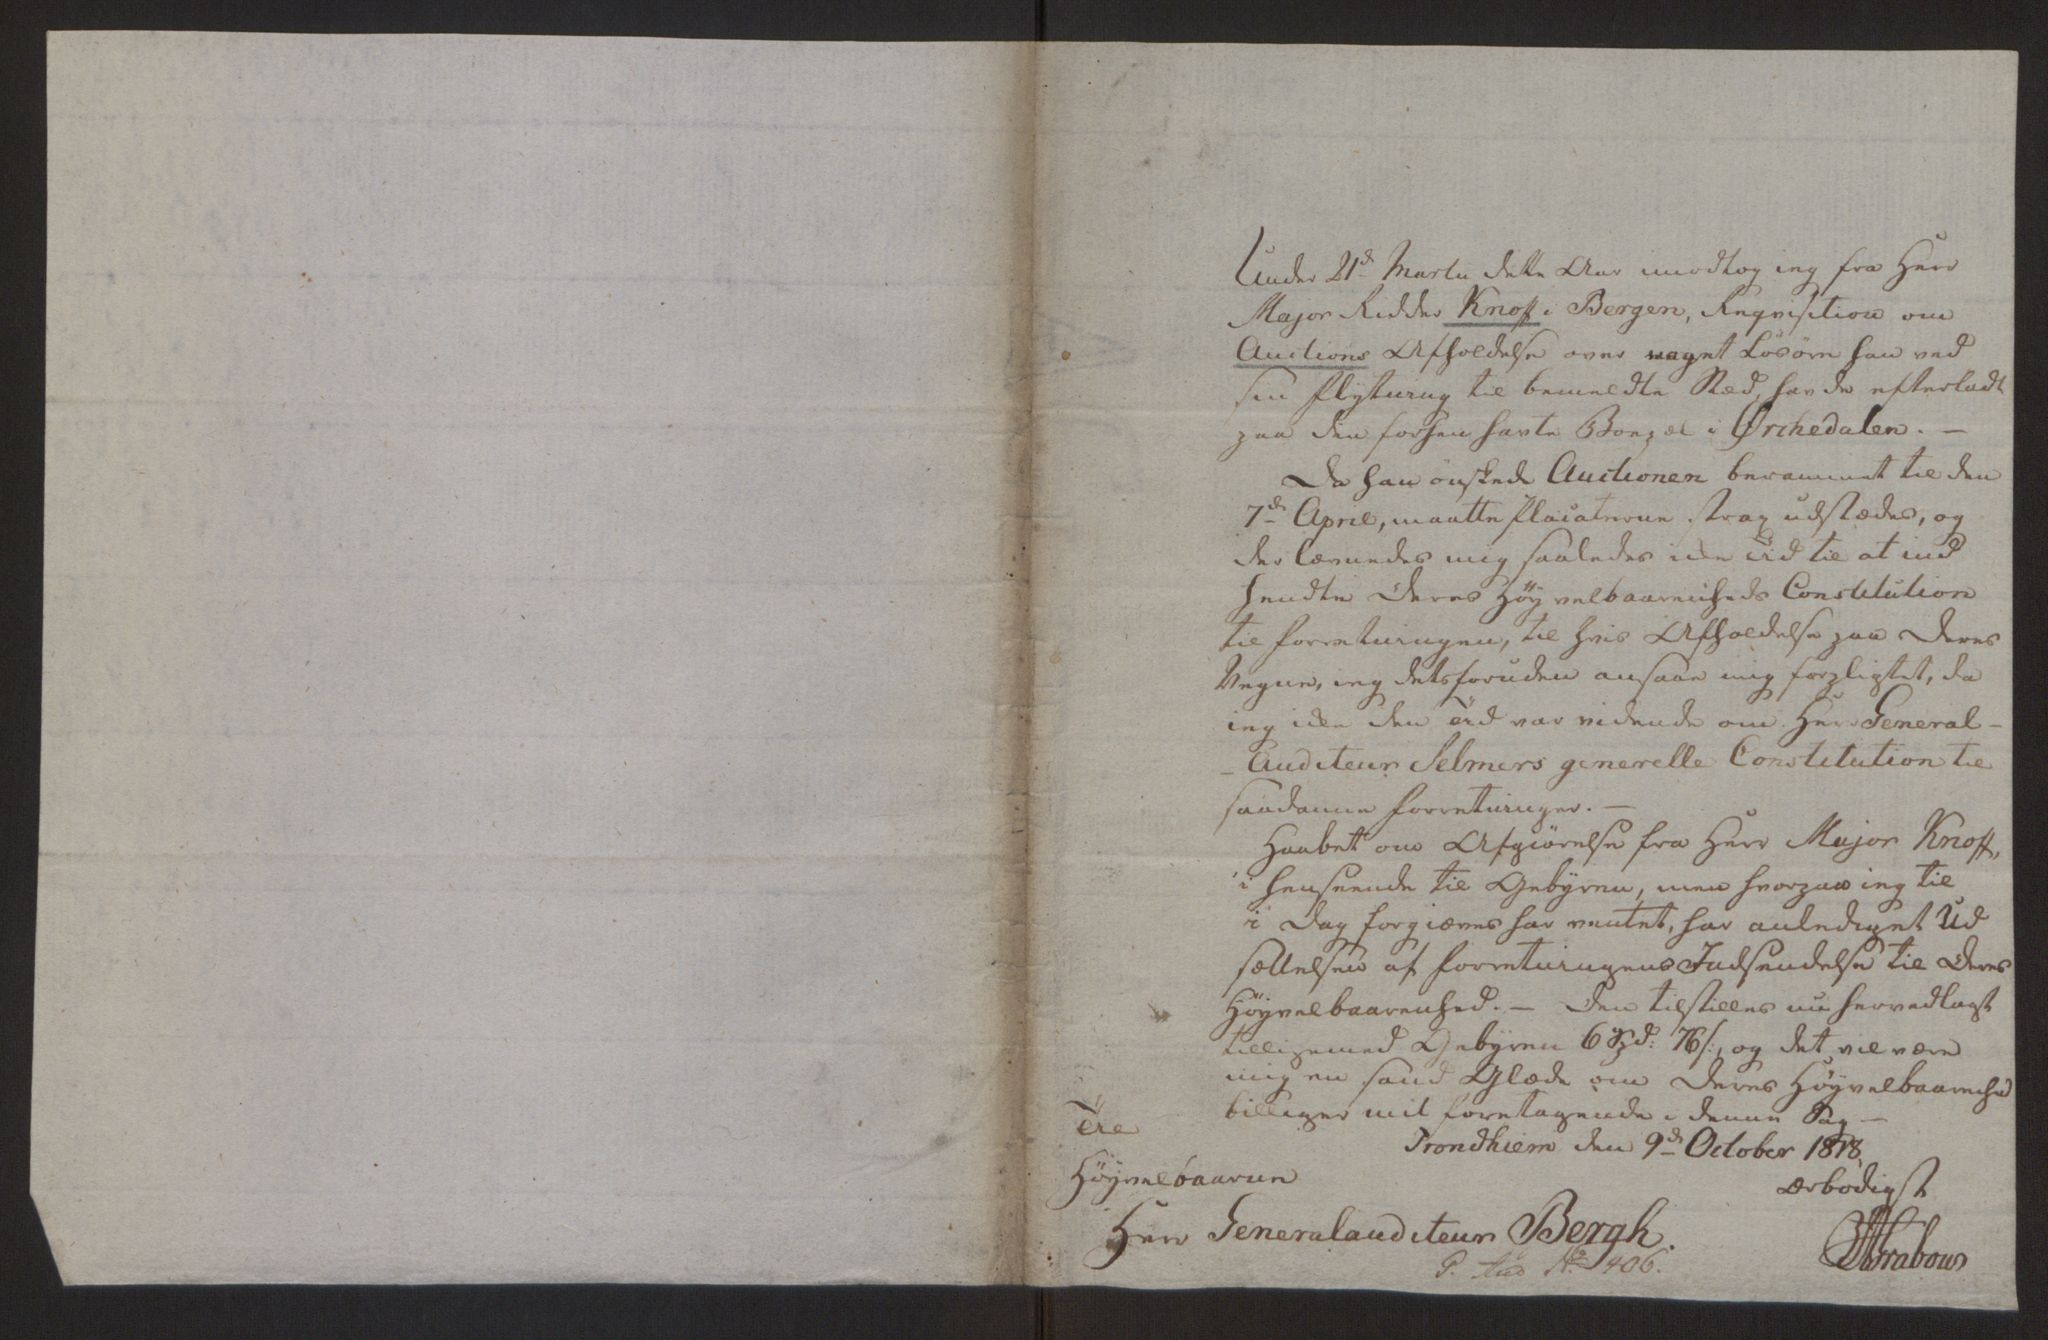 Under 21d Martii dette Aar modtog ieg fra Herr
Major Ridder Knoff i Bergen, Reqvisition om
Auctions Afholdelse over noget Løsøre han ved
sin Flytning til bemeldte Stæd, havde efterladt
paa den forhen havte Boepæl i Ørchedalen. —
Da han ønskede Auctionen berammet til den
7de April, maatte Placaterne strax udstædes, og
der levnedes mig saaledes ikke Tid til at ind
hendte Deres Høyvelbaarenheds Constitution
til Forretningen, til hvis Afholdelse paa Deres
Vegne, ieg detsforuden ansaae mig forpligtet, da
ieg ikke den Tid var vidende om Herr General-
-Auditeur Selmers generelle Constitution til
saadanne Forretninger. —
Haabet om Afgiørelse fra Herr Major Knoff,
i henseende til Gebyren, men hvorpaa ieg til
i Dag forgiæves har ventet, har anlediget Ud
sættelsen af Forretningens Indsendelse til Deres
Høyvelbaarenhed. — Den tilstilles nu hervedlagt
tilligemed Gebyren 6 Spd: 76 s:, og det vil være
mig en sand Glæde om Deres Høyvelbaarenhed
billiger mit Foretagende i denne Sag —
Trondhiem den 9de October 1818
Til
Høyvelbaarne
ærbødigst
Herr Generalauditeur Bergh.
Grabow
P. Aud No 406.